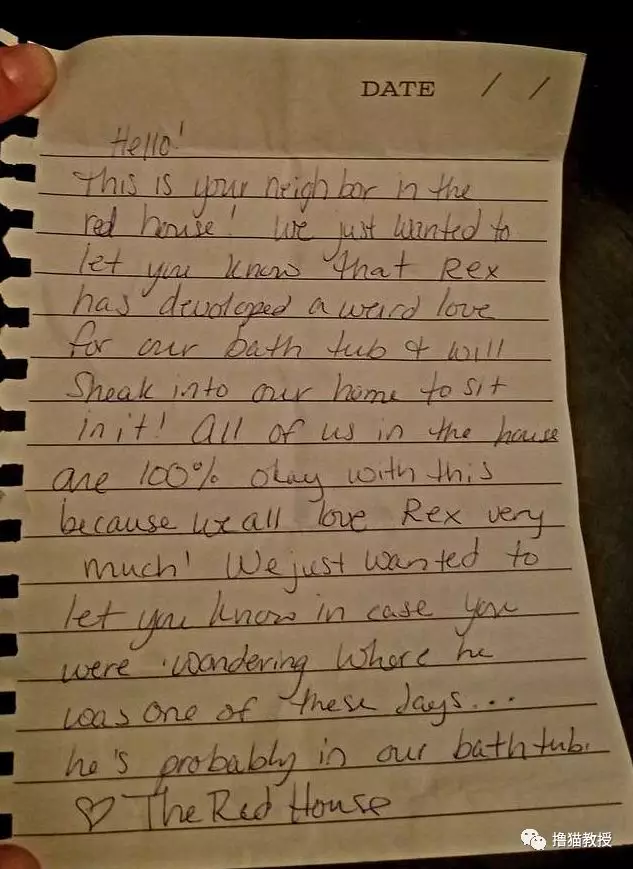 DATE / /
Hello!
This is your neighbor in the
red house! We just wanted to
let you know that Rex
has devoloped a weird love
for our bath tub & will
Sneak into our home to sit
in it! All of us in the house
are 100% okay with this
because we all love Rex very
much! We just wanted to
let you know in case you
were wandering where he
was one of these days...
he's probably in our bathtub.
♡ The Red House
撸猫教授